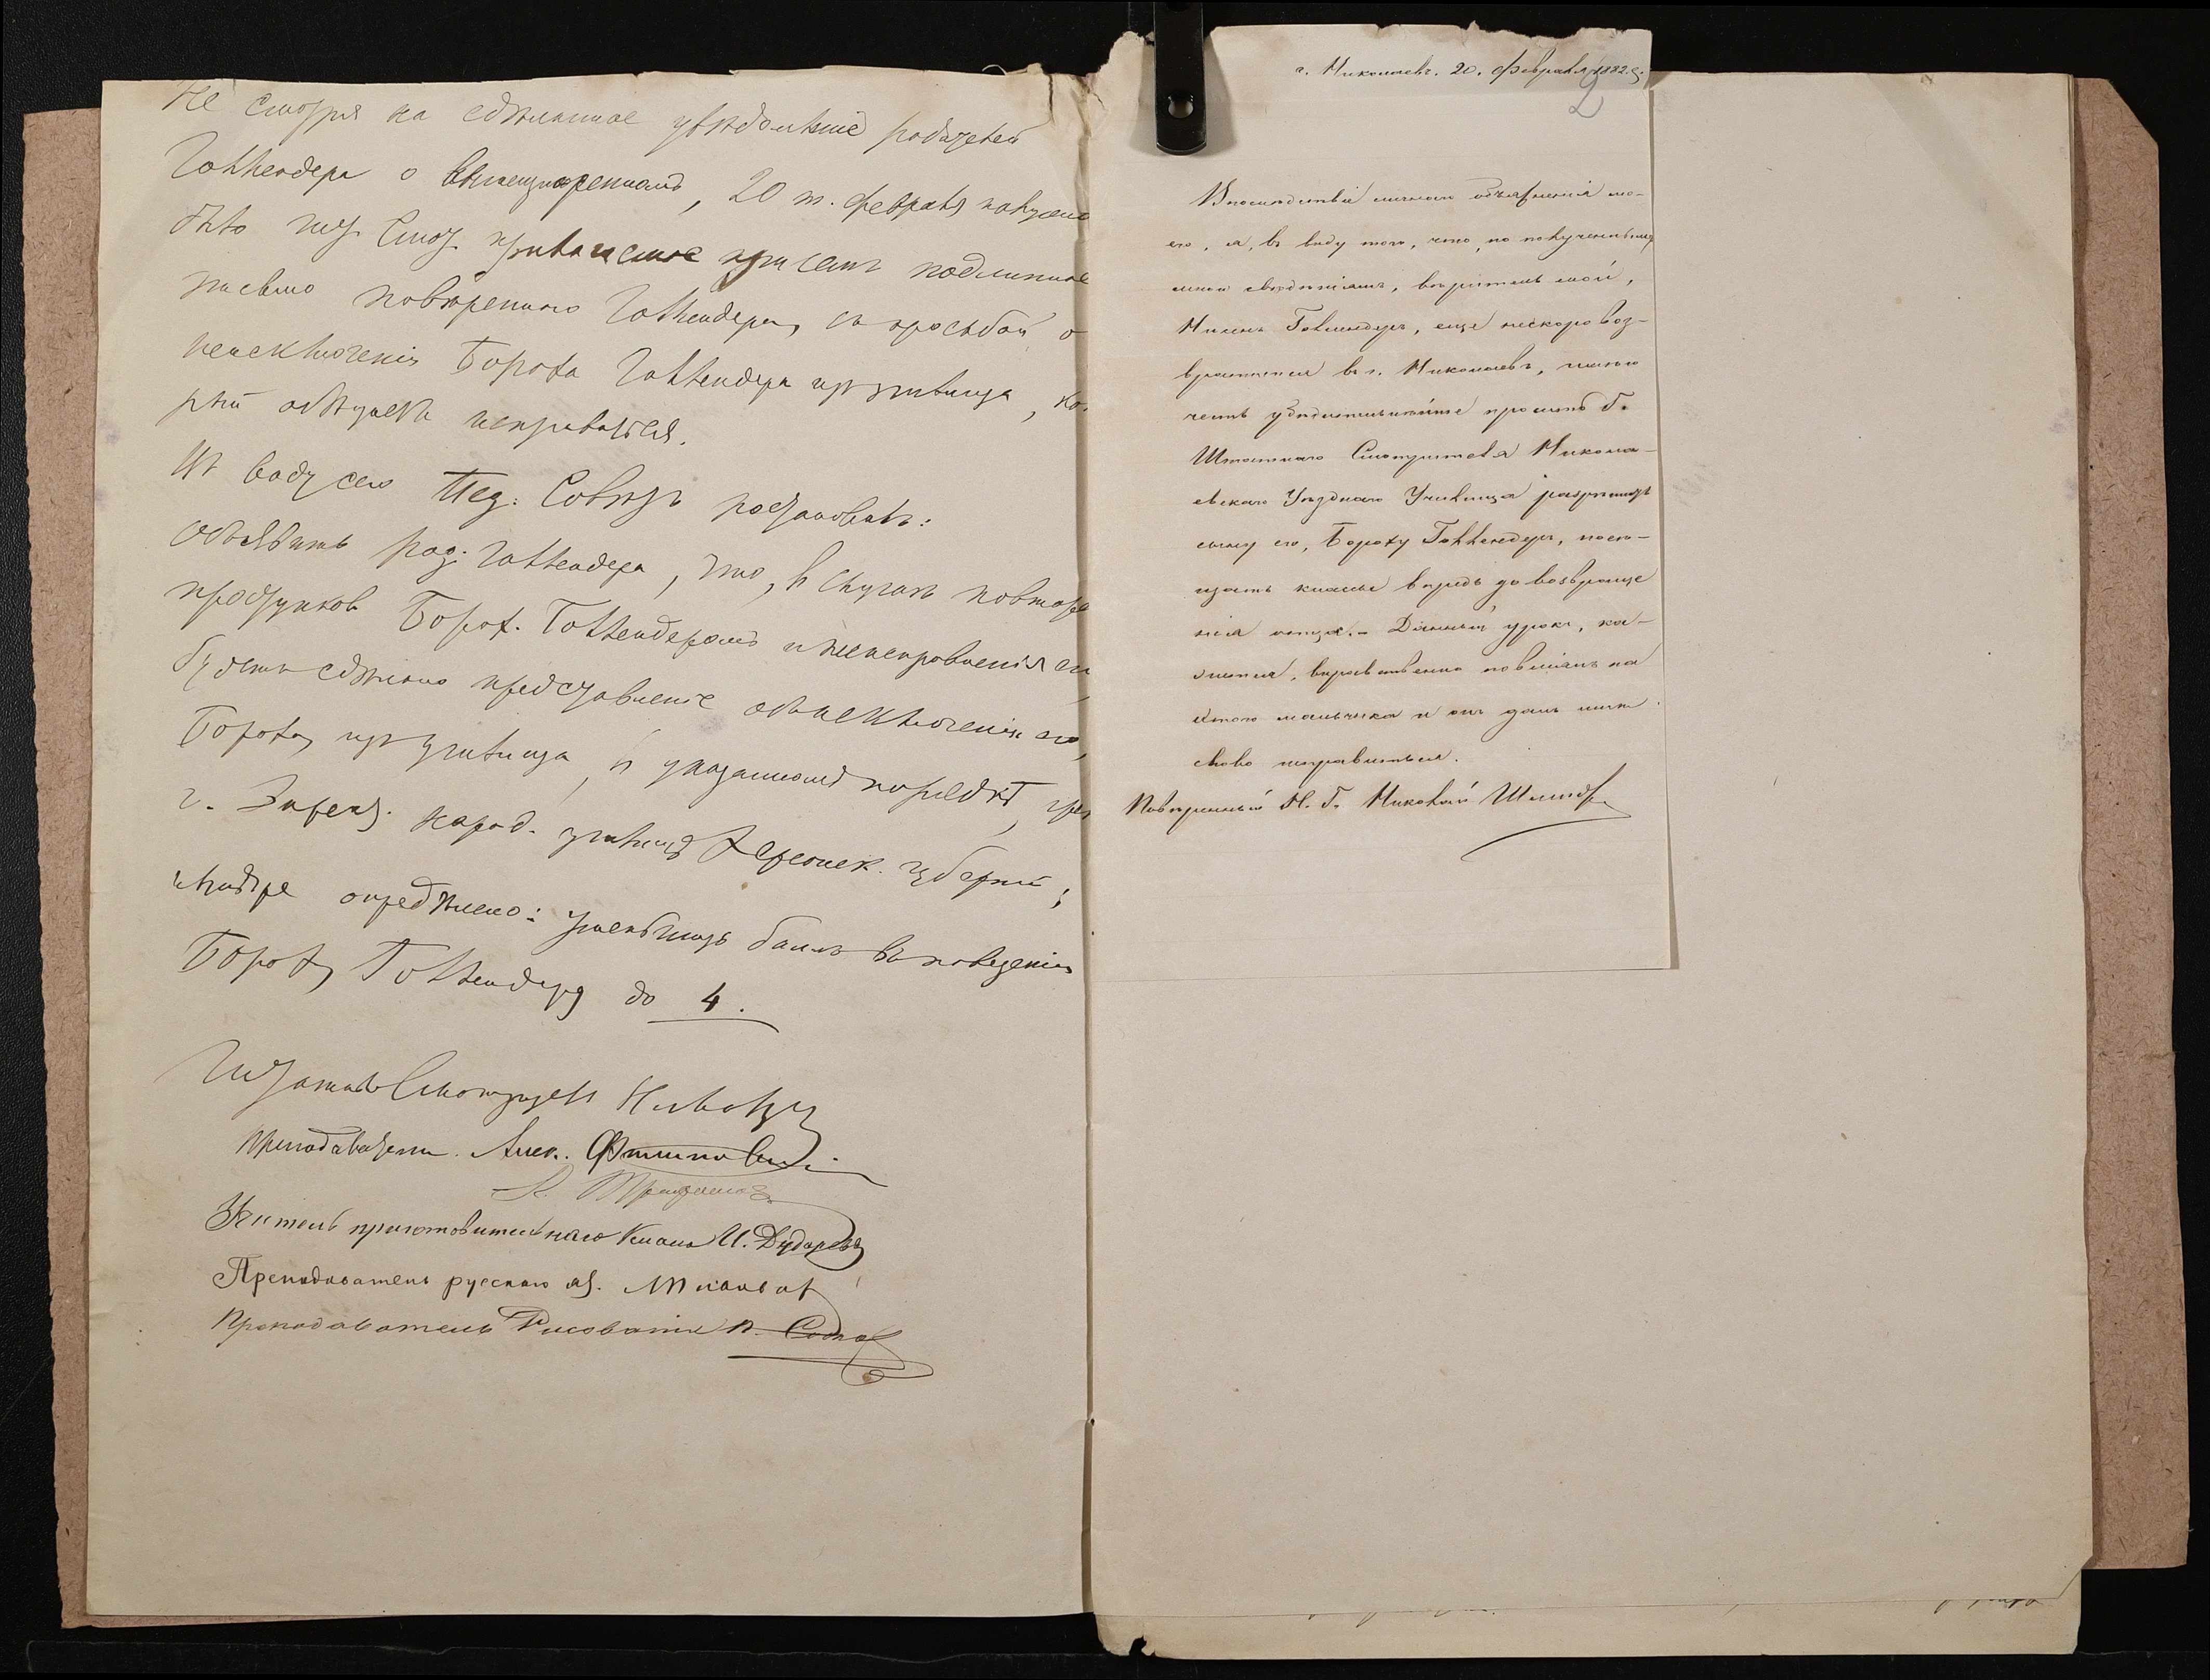 Не смотря на сдѣланное увѣдомленіе родителей
Голлендера о вышеизложенномъ, 20 т. февраля получено
было шт. Смот. прилагаемое при семъ подлинное
письмо повѣреннаго Голлендера, съ просьбой о
неисключеніи Бороха Голлендера изъ училища, ко-
рый обѣщаетъ исправиться.
Въ виду сего Пед. Совѣтъ постановилъ:
объявить род. Голлендера, что, въ случаѣ повторе
проступковъ Борох. Голлендеромъ и неисправленія его
будетъ сдѣлано представленіе объ исключеніи его,
Бороха, изъ училища, въ указанномъ порядкѣ, чрез
г. Директ. народ. училищъ Херсонск. губерніи;
опредѣлено: уменьшить баллъ въ поведеніи
Бороху Голлендеру до 4.
Штатный Смотритель
Преподаватели. Алек.
Учитель приготовительнаго класса И. Дударевъ
Преподаватель русскаго яз.
Преподаватель Рисованія
г. Николаевъ. 20. Февраля 1882 г.
2
Впослѣдствіи личнаго объясненія мо-
его, я, въ виду того, что, по полученнымъ
мною свѣдѣніямъ, вѣритель мой,
Голлендеръ, еще нескоро воз-
вратится въ г. Николаевъ, имѣю
честь убѣдительнѣйше просить Г.
Штатнаго Смотрителя Никола-
евскаго Уѣзднаго Училища разрѣшить
сыну его, Бороху Голлендеръ, посѣ-
щать классы впредь до возвраще
нія отца. - Данный урокъ, ка-
жется, нравственно повліялъ на
этого мальчика и онъ далъ мнѣ
слово исправиться.
Повѣренный Н. Г. Николай